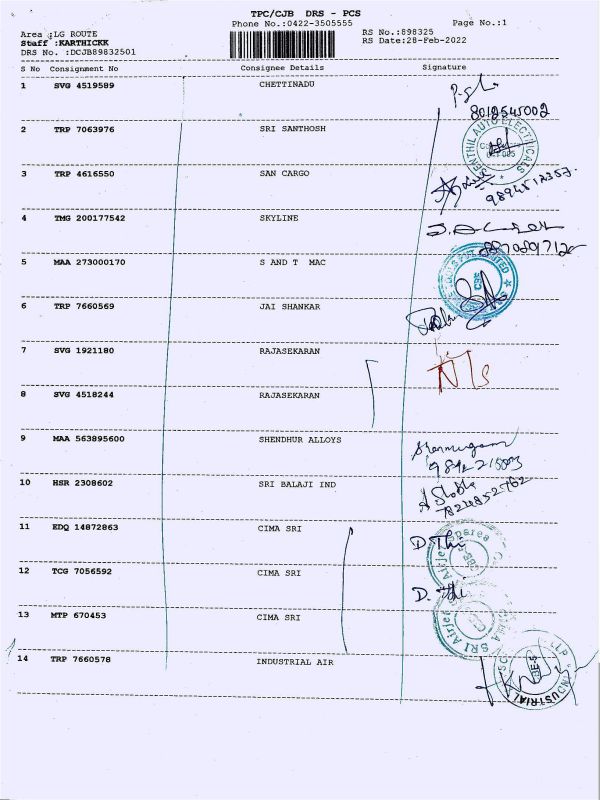 TPC/CJB DRS - PCS
Phone No.:0422-3505555
Page No.:1
Area :LG ROUTE
Staff :KARTHICKK
DRS No. :DCJB89832501
RS No.:898325
RS Date:28-Feb-2022
S No Consignment No Consignee Details Signature
1 SVG 4519589 CHETTINADU
8012545002
2 TRP 7063976 SRI SANTHOSH
SENTHIL AUTO ELECTRICALS
3 TRP 4616550 SAN CARGO
4 TMG 200177542 SKYLINE
5 MAA 273000170 S AND T MAC
6 TRP 7660569 JAI SHANKAR
7 SVG 1921180 RAJASEKARAN
8 SVG 4518244 RAJASEKARAN
9 MAA 563895600 SHENDHUR ALLOYS
Shanmugam
10 HSR 2308602 SRI BALAJI IND
11 EDQ 14872863 CIMA SRI
12 TCG 7056592 CIMA SRI
13 MTP 670453 CIMA SRI
14 TRP 7660578 INDUSTRIAL AIR